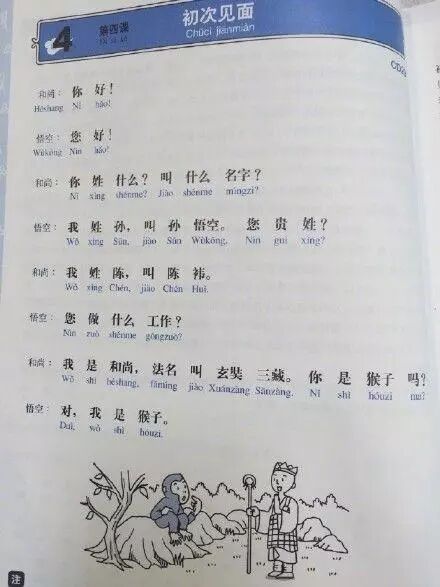 4 第四课 初次见面
Chūcì jiànmiàn
和尚： 你 好！
Héshang Nǐ hǎo!
悟空： 您 好！
Wùkōng Nín hǎo!
和尚： 你 姓 什么？ 叫 什么 名字？
Nǐ xìng shénme? Jiào shénme míngzi?
悟空： 我 姓 孙，叫 孙 悟空。 您 贵 姓？
Wǒ xìng Sūn, jiào Sūn Wùkōng. Nín guì xìng?
和尚： 我 姓 陈，叫 陈 祎。
Wǒ xìng Chén, jiào Chén Huī.
悟空： 您 做 什么 工作？
Nín zuò shénme gōngzuò?
和尚： 我 是 和尚，法名 叫 玄奘 三藏。 你 是 猴子 吗？
Wǒ shì héshang, fǎmíng jiào Xuánzàng Sānzàng. Nǐ shì hóuzi ma?
悟空： 对，我 是 猴子。
Duì, wǒ shì hóuzi.
注